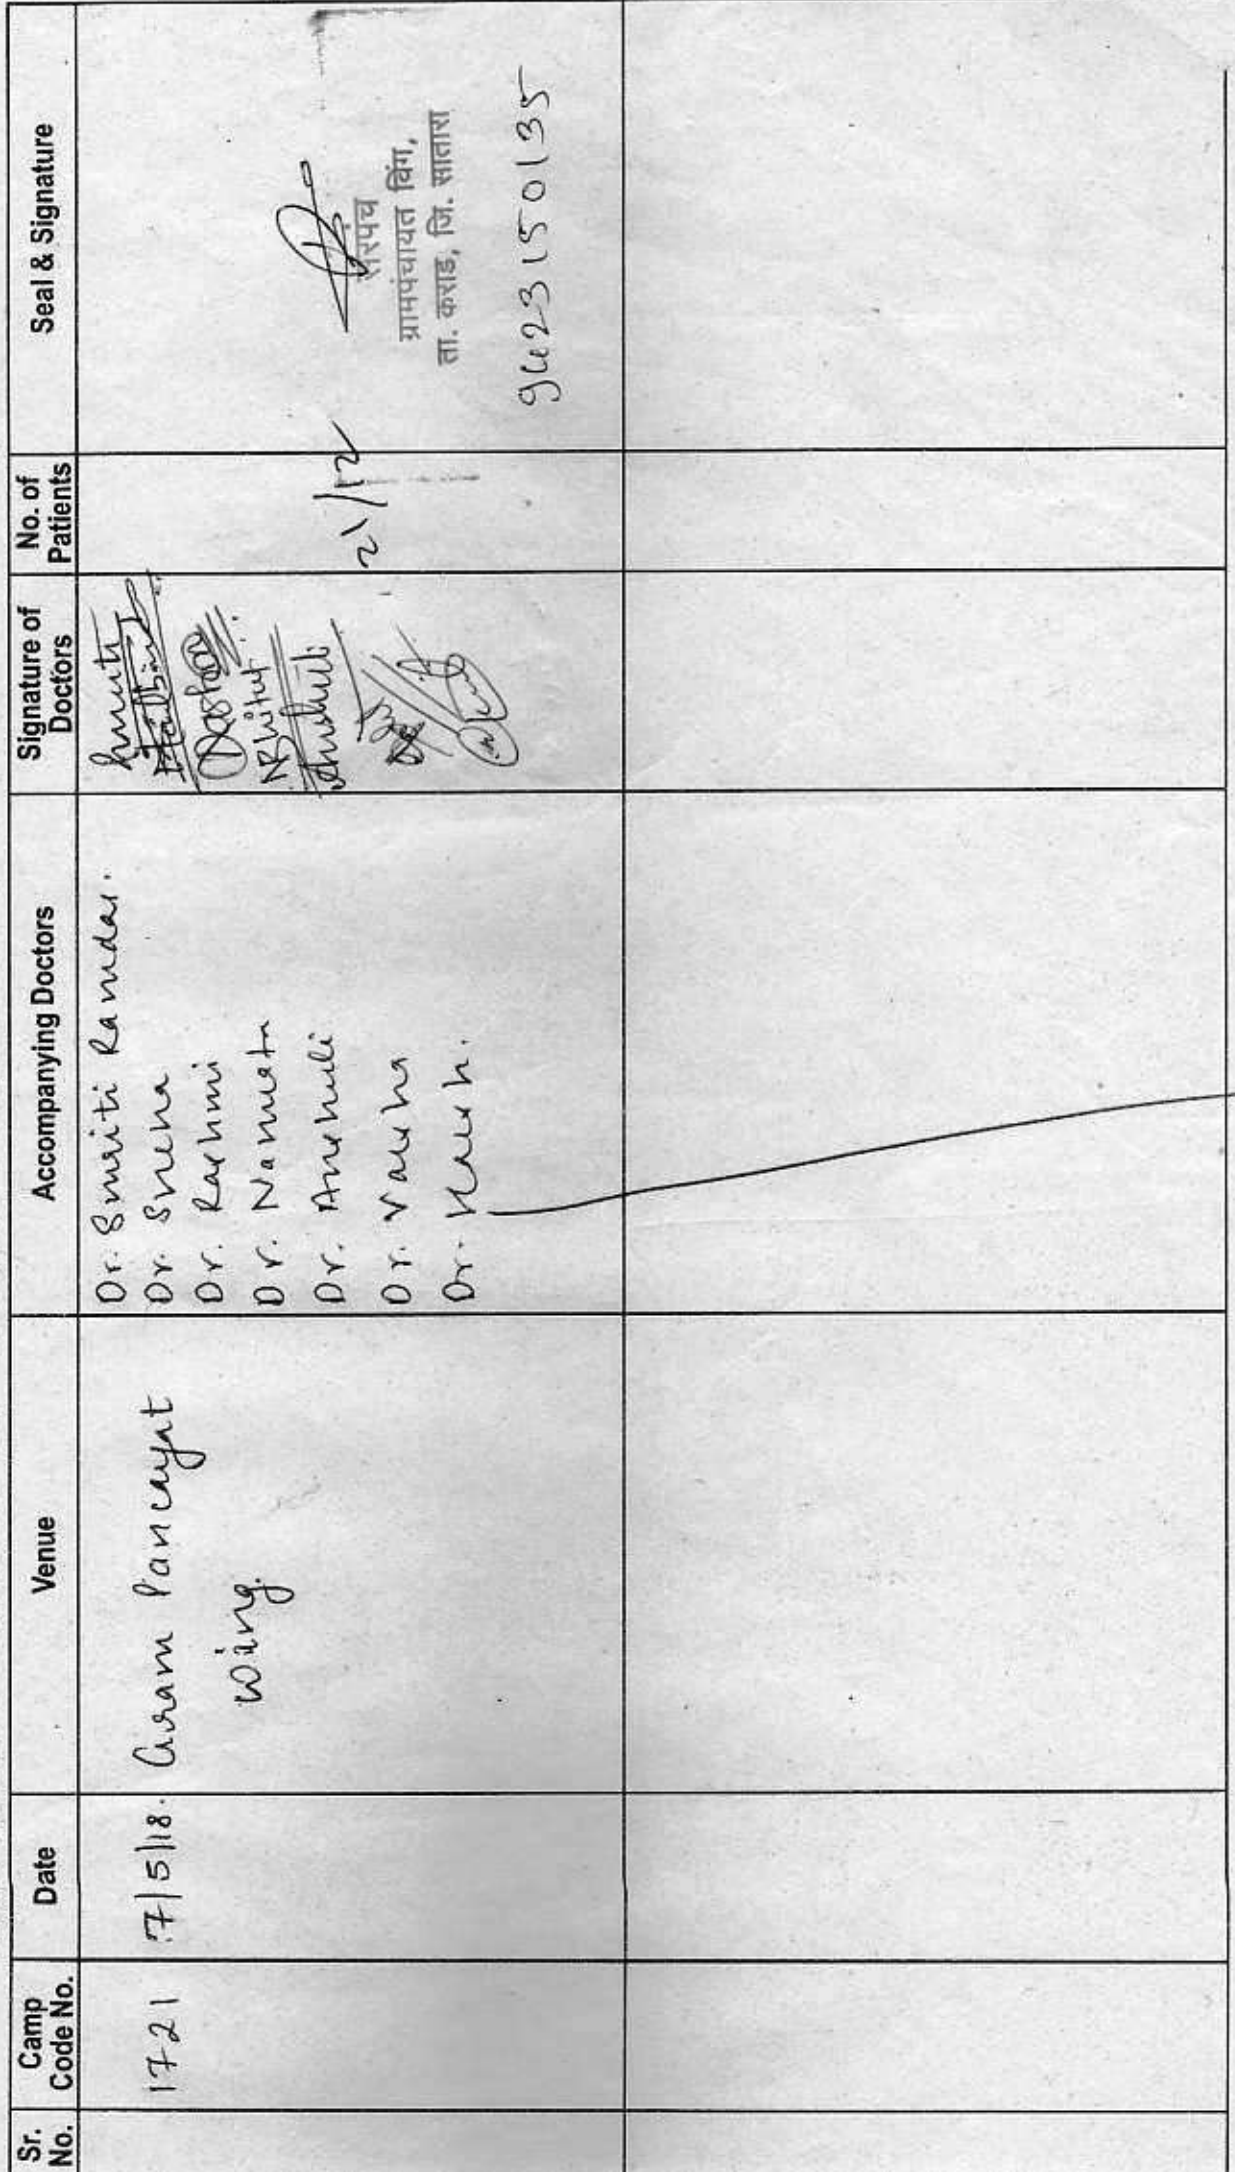 Sr. No.
Camp Code No.
Date
Venue
Accompanying Doctors
Signature of Doctors
No. of Patients
Seal & Signature
1721
7/5/18.
Gram Pancayat
Wing.
Dr. Smriti Ramdas.
Dr. Sneha
Dr. Rashmi
Dr. Namrata
Dr. Anshuli
Dr. Varsha
Dr. Harsh.
21/12
सरपंच
ग्रामपंचायत विंग,
ता. कराड, जि. सातारा
9423150135